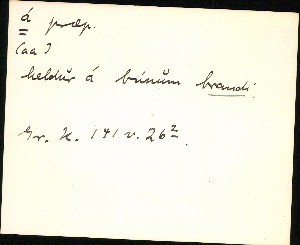 á præp.
(aa)
heldur á búnum brandi
Gr. H. 141 v. 26²